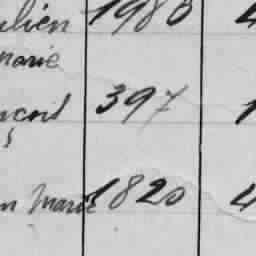 ulien 1980 4
marie
ncois 397 1
n Marie 1820 4